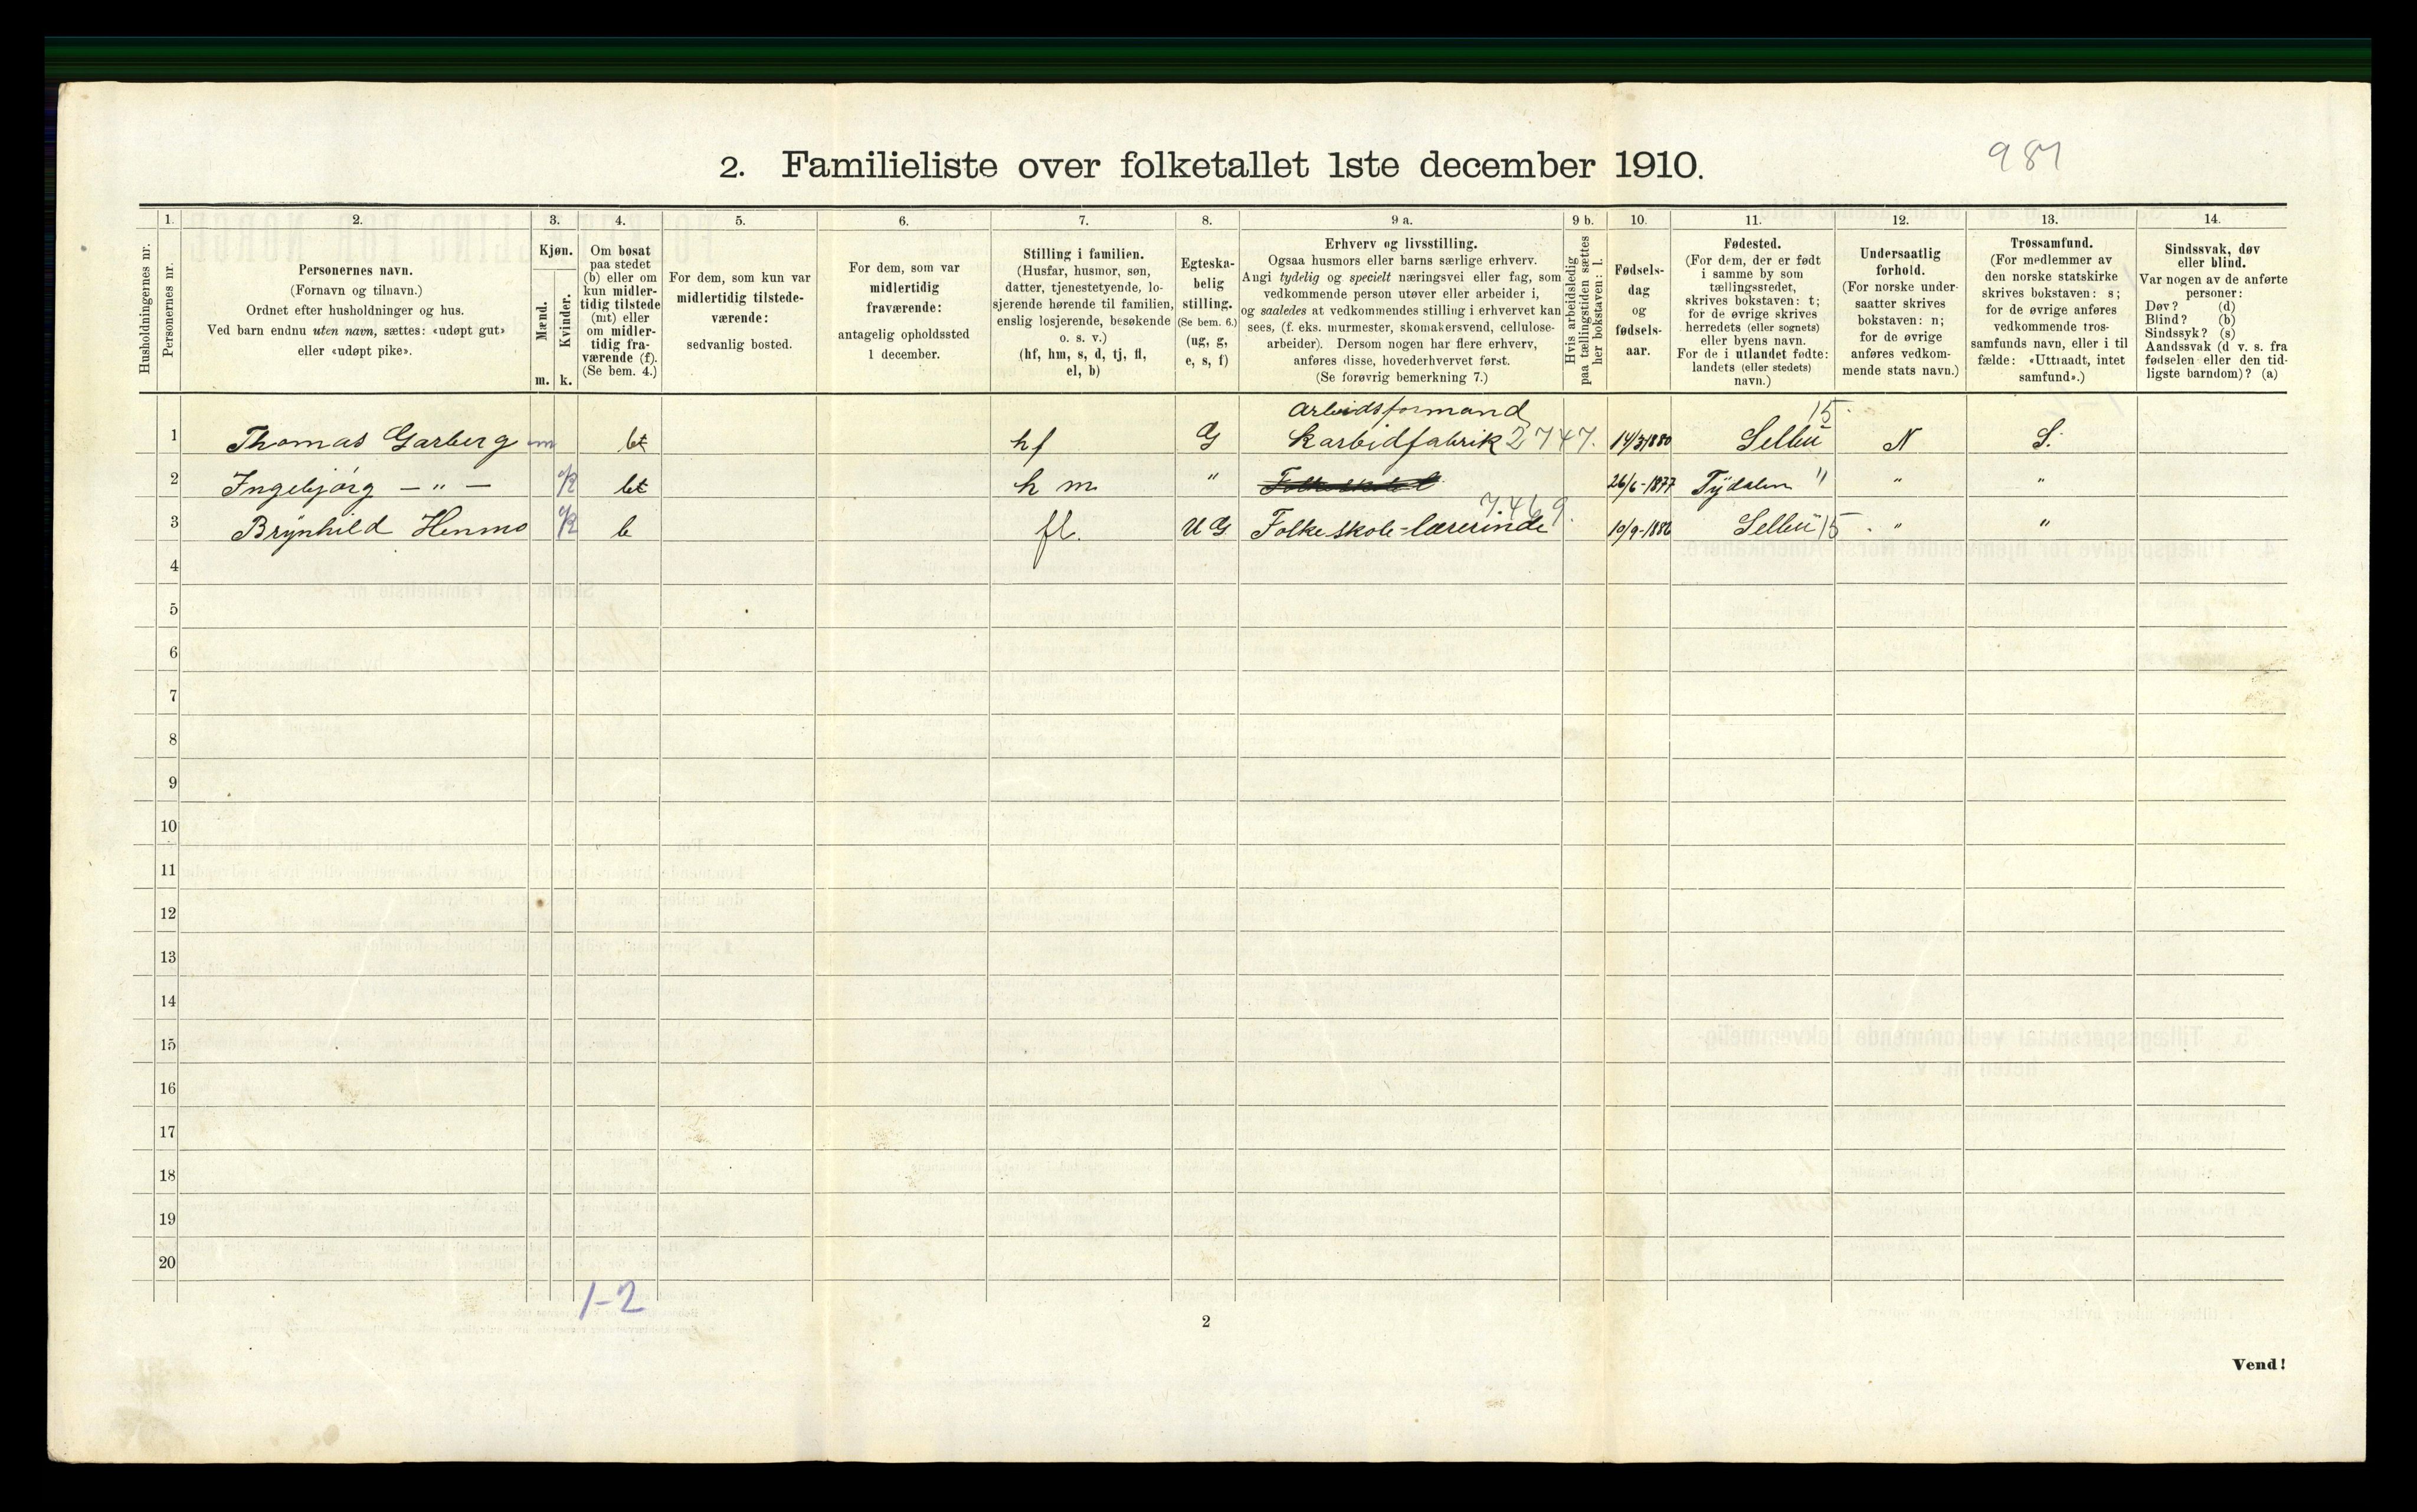 984
2. Familieliste over folketallet 1ste december 1910.
Husholdningernes nr.
1.
Personernes nr.
2.
Personernes navn.
(Fornavn og tilnavn.)
Ordnet efter husholdninger og hus.
Ved barn endnu uten navn, sættes: «udøpt gut»
eller «udøpt pike».
3.
Kjøn.
Mænd.
Kvinder.
m.
k.
4.
Om bosat
paa stedet
(b) eller om
kun midler-
tidig tilstede
(mt) eller
om midler-
tidig fra-
værende (f).
(Se bem. 4.)
5.
For dem, som kun var
midlertidig tilstede-
værende:
sedvanlig bosted.
6.
For dem, som var
midlertidig
fraværende:
antagelig opholdssted
1 december.
7.
Stilling i familien.
(Husfar, husmor, søn,
datter, tjenestetyende, lo-
sjerende hørende til familien,
enslig losjerende, besøkende
o. s. v.)
(hf, hm, s, d, tj, fl,
el, b)
8.
Egteska-
belig
stilling.
(Se bem. 6.)
(ug, g,
e, s, f)
9 a.
Erhverv og livsstilling.
Ogsaa husmors eller barns særlige erhverv.
Angi tydelig og specielt næringsvei eller fag, som
vedkommende person utøver eller arbeider i,
og saaledes at vedkommendes stilling i erhvervet kan
sees, (f. eks. murmester, skomakersvend, cellulose-
arbeider). Dersom nogen har flere erhverv,
anføres disse, hovederhvervet først.
(Se forøvrig bemerkning 7.)
9 b.
Hvis arbeidsledig
paa tællingstiden sættes
her bokstaven: l.
10.
Fødsels-
dag
og
fødsels-
aar.
11.
Fødested.
(For dem, der er født
i samme by som
tællingsstedet,
skrives bokstaven: t;
for de øvrige skrives
herredets (eller sognets)
eller byens navn.
For de i utlandet fødte:
landets (eller stedets)
navn.)
12.
Undersaatlig
forhold.
(For norske under-
saatter skrives
bokstaven: n;
for de øvrige
anføres vedkom-
mende stats navn.)
13.
Trossamfund.
(For medlemmer av
den norske statskirke
skrives bokstaven: s;
for de øvrige anføres
vedkommende tros-
samfunds navn, eller i til
fælde: «Uttraadt, intet
samfund».)
14.
Sindssvak, døv
eller blind.
Var nogen av de anførte
personer:
Døv? (d)
Blind? (b)
Sindssyk? (s)
Aandssvak (d v. s. fra
fødselen eller den tid-
ligste barndom)? (a)
Arbeidsformand 15.
1 Thomas Garberg m bt hf G Karbidfabrik 2747. 14/3 1880 Selbu N S.
2 Ingebjørg — " — k bt h m " 26/6-1877 Tydalen " " "
7.469.
3 Brynhild Henmo k b fl. UG Folkeskole-lærerinde 10/9-1886 Selbu 15. " "
4
5
6
7
8
9
10
11
12
13
14
15
16
17
18
19
20
1-2
2
Vend!